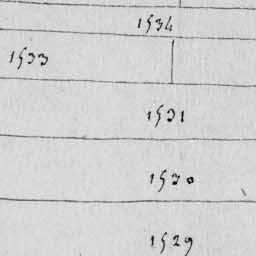 1534
1533
1531
1530
1529